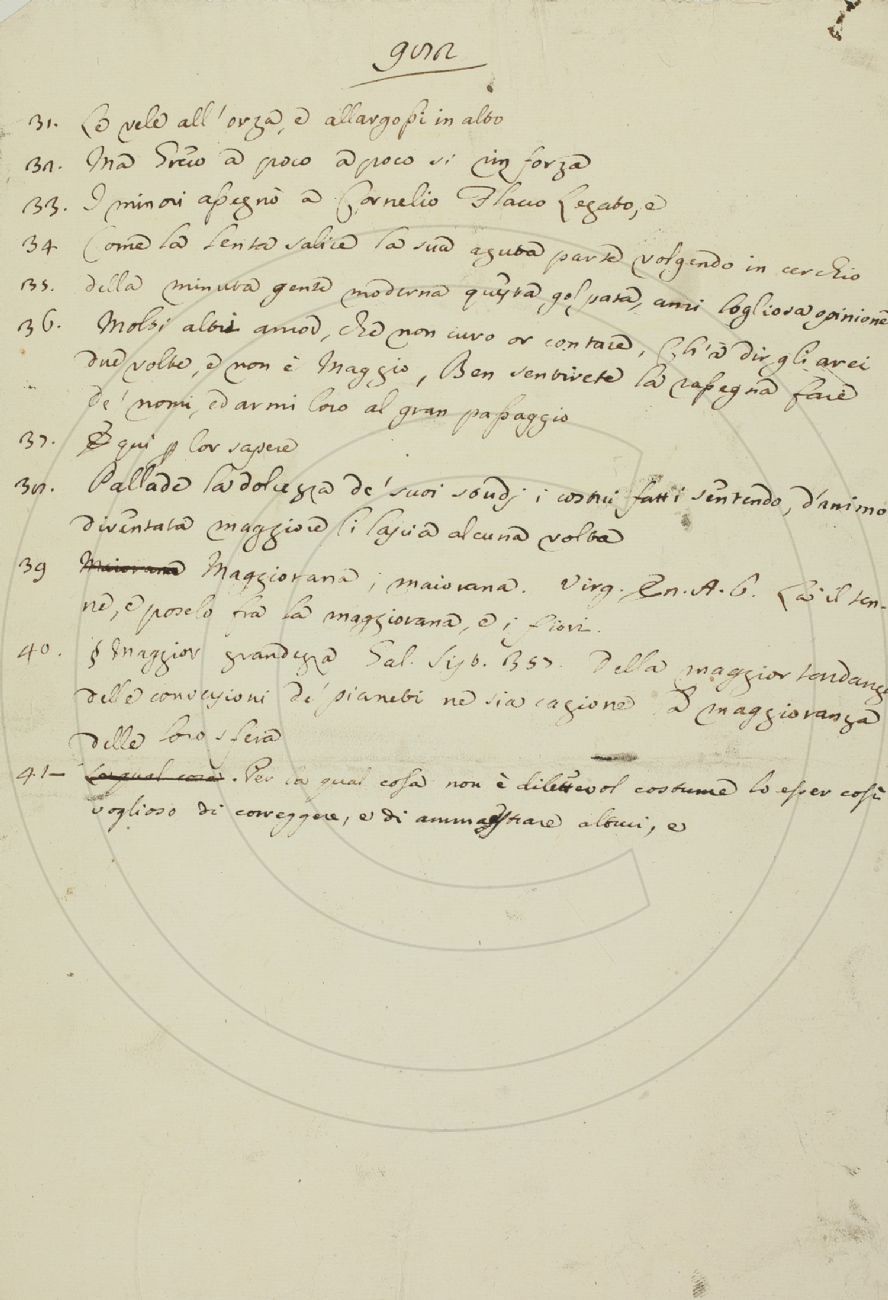 31. Le vele all'orza, e allargossi in alto
32. Ma Greco a poco a poco si rinforza
33. I minori assegnò a Cornelio Flacco Legato, e
34 Come la lenta salice la sua aguta parte volgendo in cerchio
35. della minuta gente moderna questa, anzi logliosa opinione
36. Molti altri amor, che non curo or contare, Ch'a dirgli arei
due volte, e non è Maggio, Ben sentirete la rassegna fare
de' nomi, ed armi loro al gran passaggio
37. E qui p lor sapere
38. Pallade la dolcezza de' suoi studj i costui fatti sentendo, d'animo
diventata maggiore li lascia alcuna volta
39 Maiorana Maggiorana, i maiorana. Virg. En. A. 6. La il ten-
ne, e poselo fra la maggiorana, e i fiori.
40. § Maggior grandezza Gal. Sist. 357. Della maggior tardanza
delle conversioni de' pianeti ne sia cagione la maggioranza
delle loro sfere
41- La qual cosa. Per la qual cosa non è dilettevol costume lo esser così
voglioso di correggere, e di ammaestrare altrui, e